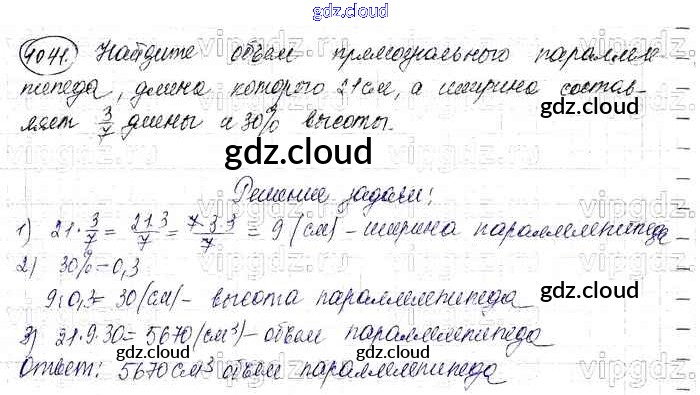 gdz.cloud
1041. Найдите объем прямоугольного параллеле-
пипеда, длина которого 21 см, а ширина состав-
ляет 3/7 длины и 30% высоты.
gdz.cloud
Решение задачи:
1) 21·3/7 = 21·3/7 = 7·3·3/7 = 9 (см) – ширина параллелепипеда
2) 30% = 0,3
9:0,3 = 30 (см) – высота параллелепипеда
gdz.cloud
3) 21·9·30 = 5670 (см³) – объем параллелепипеда
gdz.cloud gdz.cloud
Ответ: 5670 см³ объем параллелепипеда